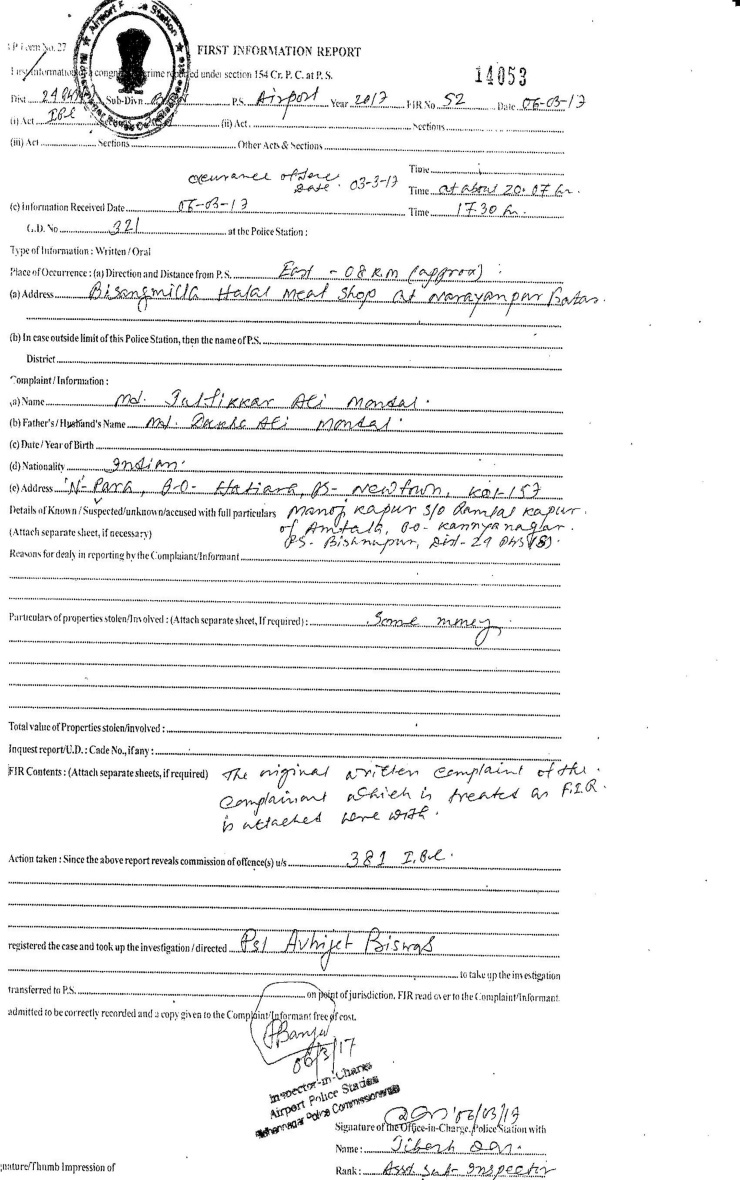 Airport Police Station
P Form No. 27
FIRST INFORMATION REPORT
First information of a crime reported under section 154 Cr. P. C. at P. S.
14053
Dist. 24 Sub-Divn. P.S. Airport Year 2017 FIR No. 52 Date 06-03-17
(i) Act IPC Sections (ii) Act Sections
(iii) Act Sections Other Acts & Sections
Date. 03-3-17
Time
Time at about 20.07 hr.
(c) Information Received Date 06-03-17 Time 17.30 hr.
G.D. No 321 at the Police Station :
Type of Information : Written / Oral
Place of Occurrence : (a) Direction and Distance from P.S. East - 08 K.m (approx) :
(a) Address Bisangmilla Halal Meat Shop at Narayanpur Battas.
(b) In case outside limit of this Police Station, then the name of P.S.
District
Complaint / Information :
(a) Name Md. Ali Mondal.
(b) Father's / Husband's Name Md. Ali Mondal.
(c) Date / Year of Birth
(d) Nationality Indian.
(e) Address 'N'- Para, P.O- Hatiara, PS- Newtown, Kol-157
Details of Known / Suspected/unknown/accused with full particulars Manoj Kapur S/o Ramlal Kapur.
of Amtala, P.O- Kannyanagar.
(Attach separate sheet, if necessary) PS- Bishnupur, Dist- 24 PGS (S).
Reasons for dealy in reporting by the Complaiant/Informant
Particulars of properties stolen/Involved : (Attach separate sheet, If required) : Some money
Total value of Properties stolen/involved :
Inquest report/U.D. : Cade No., if any :
FIR Contents : (Attach separate sheets, if required) The original written complaint of the
complainant which is treated as F.I.R.
is attached here with.
Action taken : Since the above report reveals commission of offence(s) u/s 381 I.P.C.
registered the case and took up the investigation / directed PSI Avhijet Biswas
to take up the investigation
transferred to P.S. on point of jurisdiction. FIR read over to the Complaint/Informant.
admitted to be correctly recorded and a copy given to the Complaint/Informant free of cost.
06/3/17
Inspector-in-Charge
Airport Police Station
Bidhannagar Police Commissionerate
06/03/17
Signature of the Office-in-Charge, Police Station with
Name : Tibesh Das.
Rank : Asst. Sub- Inspector
gnature/Thumb Impression of